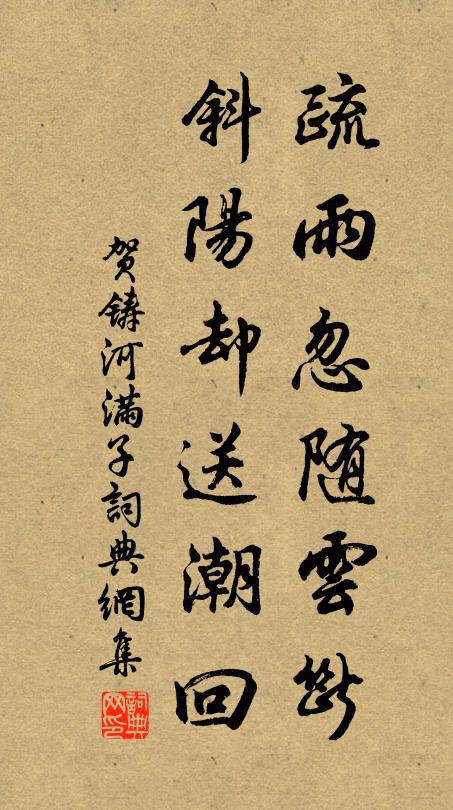 疏雨忽随雲斷
斜陽却送潮回
贺铸河滿子詞典網集
詞典網印